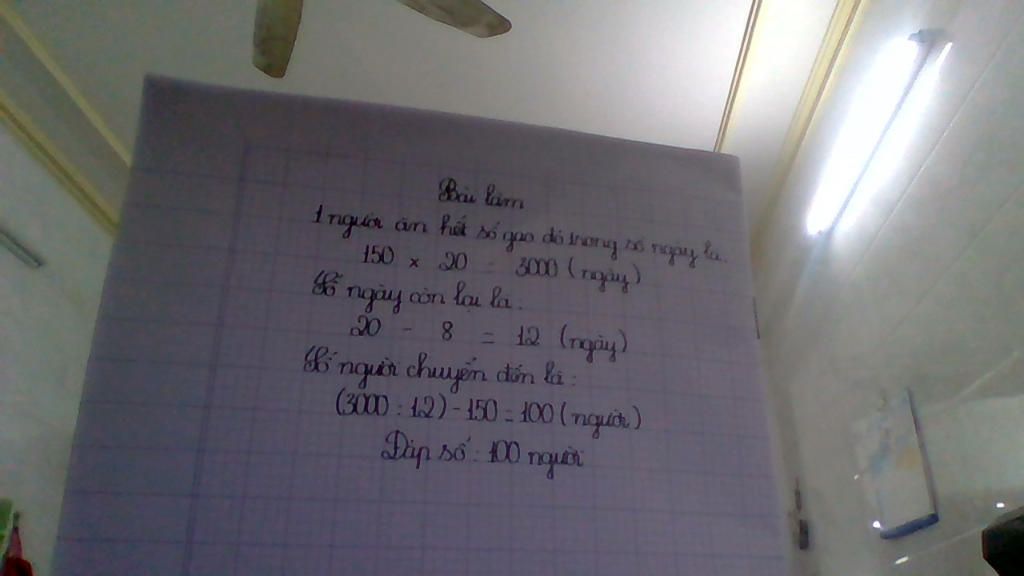 Bài làm
1 người ăn hết số gạo đó trong số ngày là.
150 x 20 = 3000 (ngày)
Số ngày còn lại là:
20 - 8 = 12 (ngày)
Số người chuyển đến là:
(3000 : 12) - 150 = 100 (người)
Đáp số : 100 người